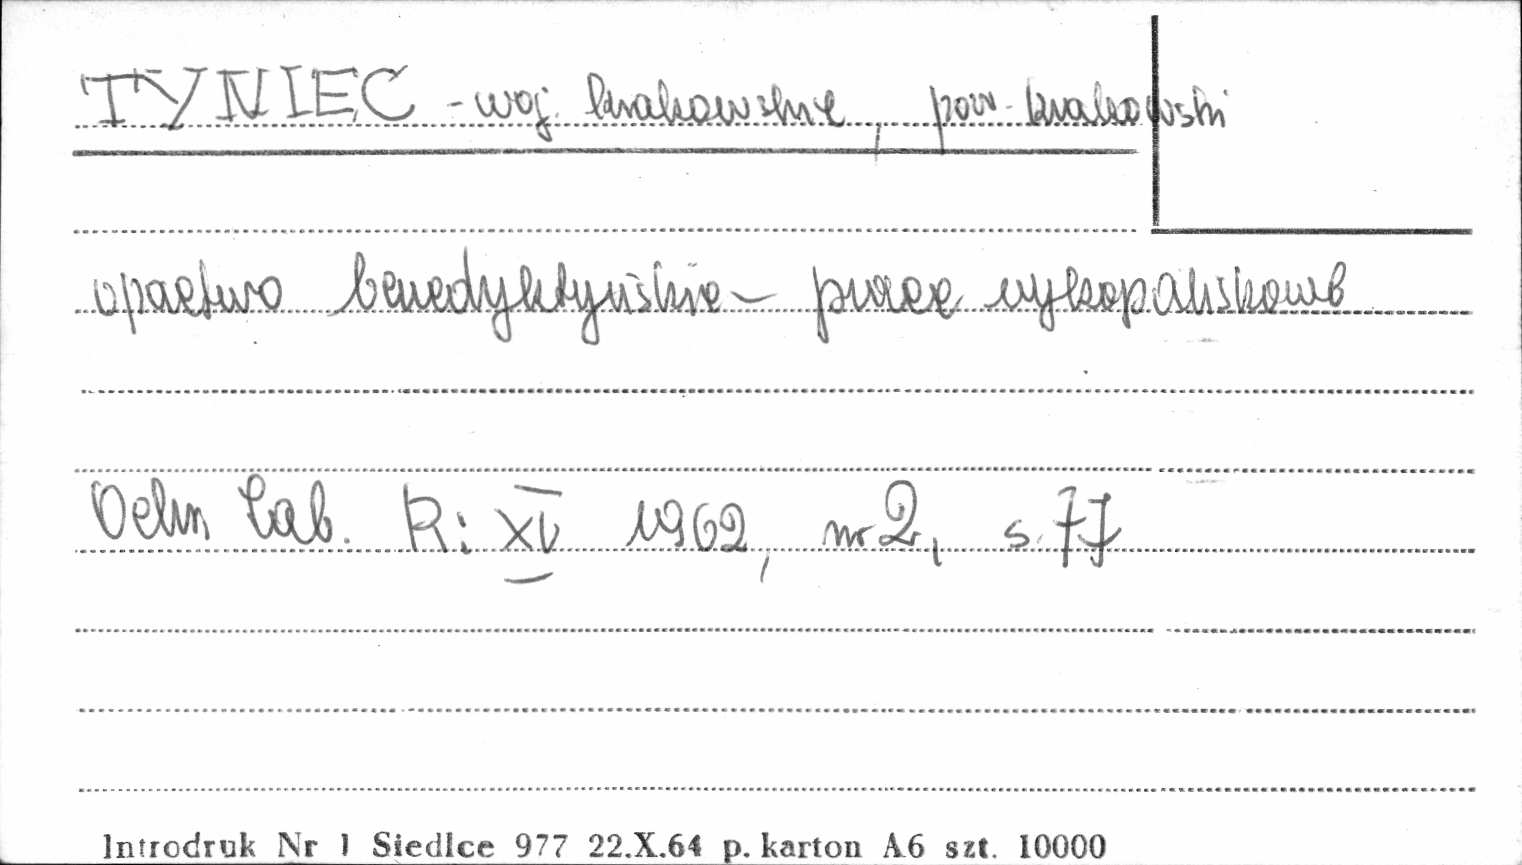 TYNIEC - woj. krakowskie, pow. krakowski
opactwo benedyktyńskie - prace wykopaliskowe
Ochr. Zab. R: XV 1962, nr 2, s. 77
Introdruk Nr 1 Siedlce 977 22.X.64 p. karton A6 szt. 10000